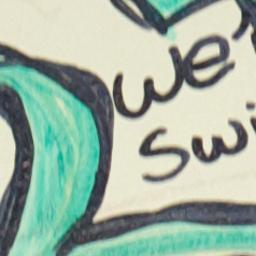 we'
swi